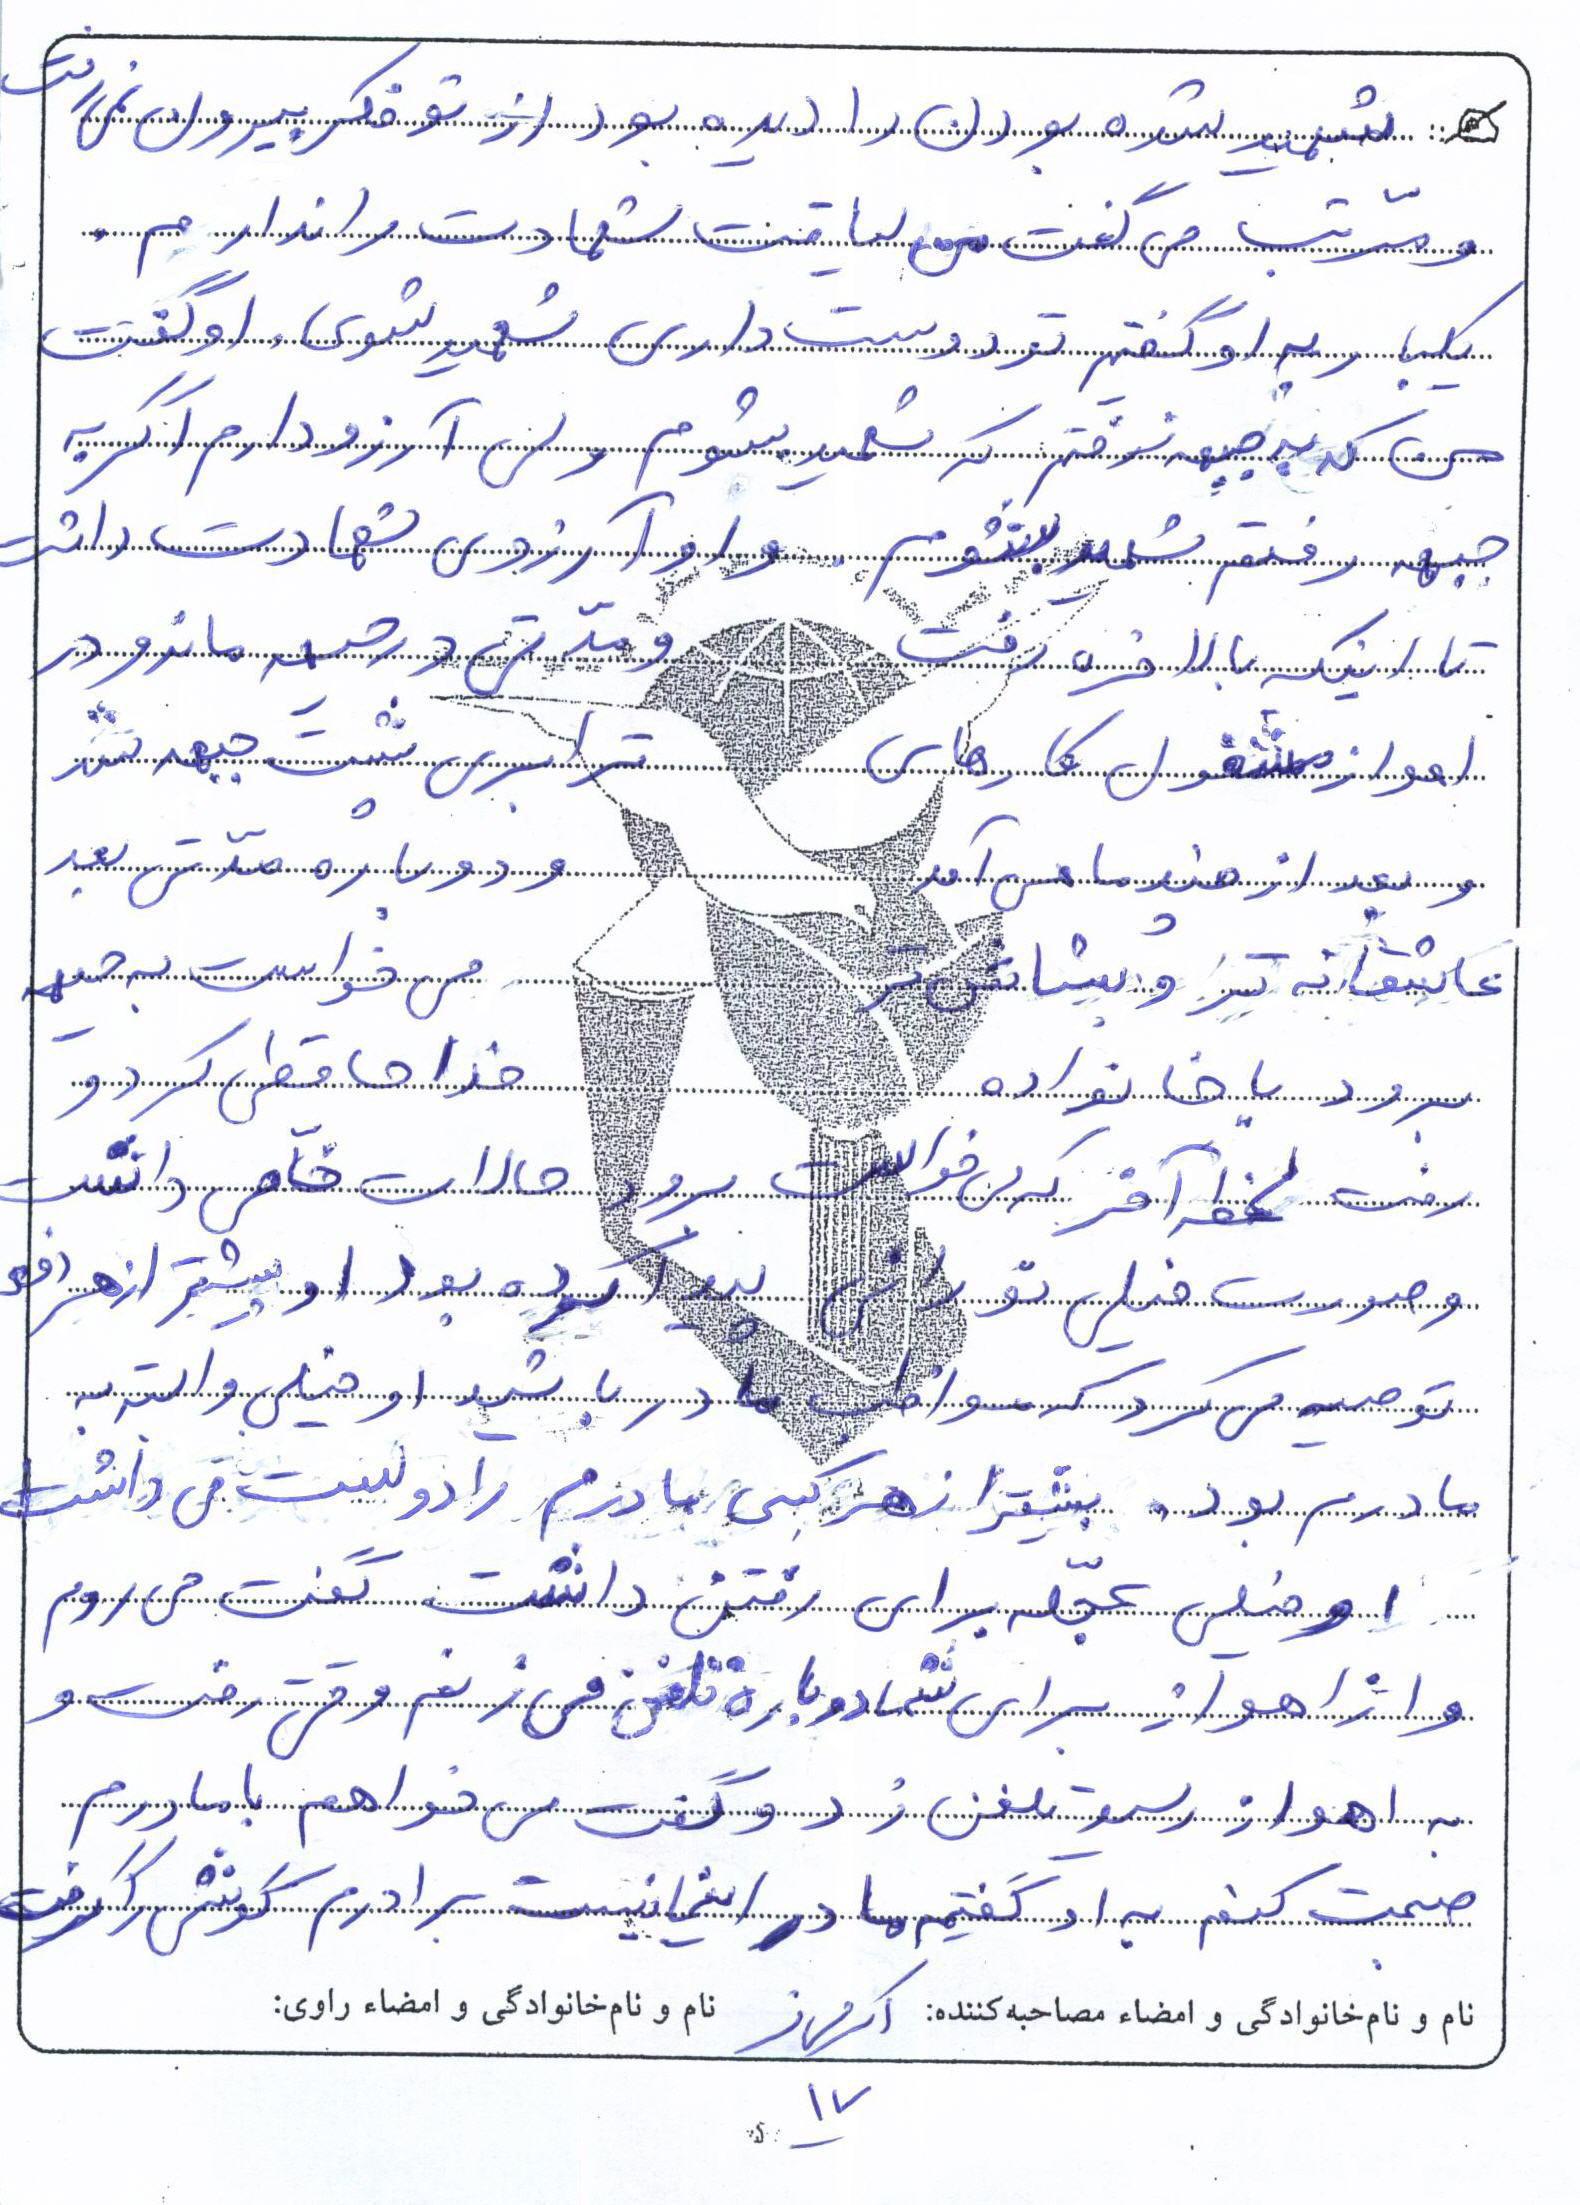 شهید شده بودن را دیده بود از تو فکر بیرون نمی رفت
و مرّتب می گفت من لیاقت شهادت را ندارم .
یکبار به او گفتم تو دوست داری شهید شوی . او گفت
من که به جبهه نرفتم که شهید بشوم ولی آرزو دارم اگر به
جبهه رفتم شهید بشوم . و او آرزوی شهادت داشت
تا اینکه بالاخره رفت و مدّتی در جبهه ماند و در
اهواز مشغول کارهای ترابری پشت جبهه شد
و بعد از چند ماهی آمد و دوباره مدّتی بعد
عاشقانه تر و بشاش تر می خواست به جبهه
برود با خانواده خداحافظی کرد و
رفت لحظه آخر که می خواست برود حالات خاّصی داشت
و صورت خیلی نورانی پیدا کرده بود او بیشتر از هر دفعه
توصیه می کرد که مواظب مادر باشید او خیلی وابسته به
مادرم بود . بیشتر از هر کسی مادرم را دوست می داشت
او خیلی عجّله برای رفتن داشت گفت می روم
و از اهواز برای شما دوباره تلفن می زنم وقتی رفت و
به اهواز رسید تلفن زد و گفت می خواهم با مادرم
صحبت کنم به او گفتیم مادر اینجا نیست برادرم گوشی را گرفت
نام و نام خانوادگی و امضاء مصاحبه کننده: نام و نام خانوادگی و امضاء راوی:
۱۷